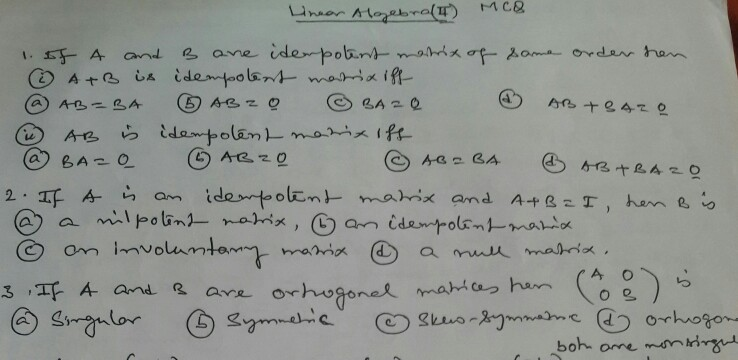 Linear Algebra(II) MCQ
1. If A and B are idempotent matrix of same order then
(i) A+B is idempotent matrix iff
(a) AB = BA (b) AB = 0 (c) BA = 0 (d) AB + BA = 0
(ii) AB is idempotent matrix iff
(a) BA = 0 (b) AB = 0 (c) AB = BA (d) AB + BA = 0
2. If A is an idempotent matrix and A+B = I, then B is
(a) a nilpotent matrix, (b) an idempotent matrix
(c) an involuntary matrix (d) a null matrix.
3. If A and B are orthogonal matrices then (A 0
0 B) is
(a) Singular (b) Symmetric (c) Skew-Symmetric (d) orthogon
both are nonsingul